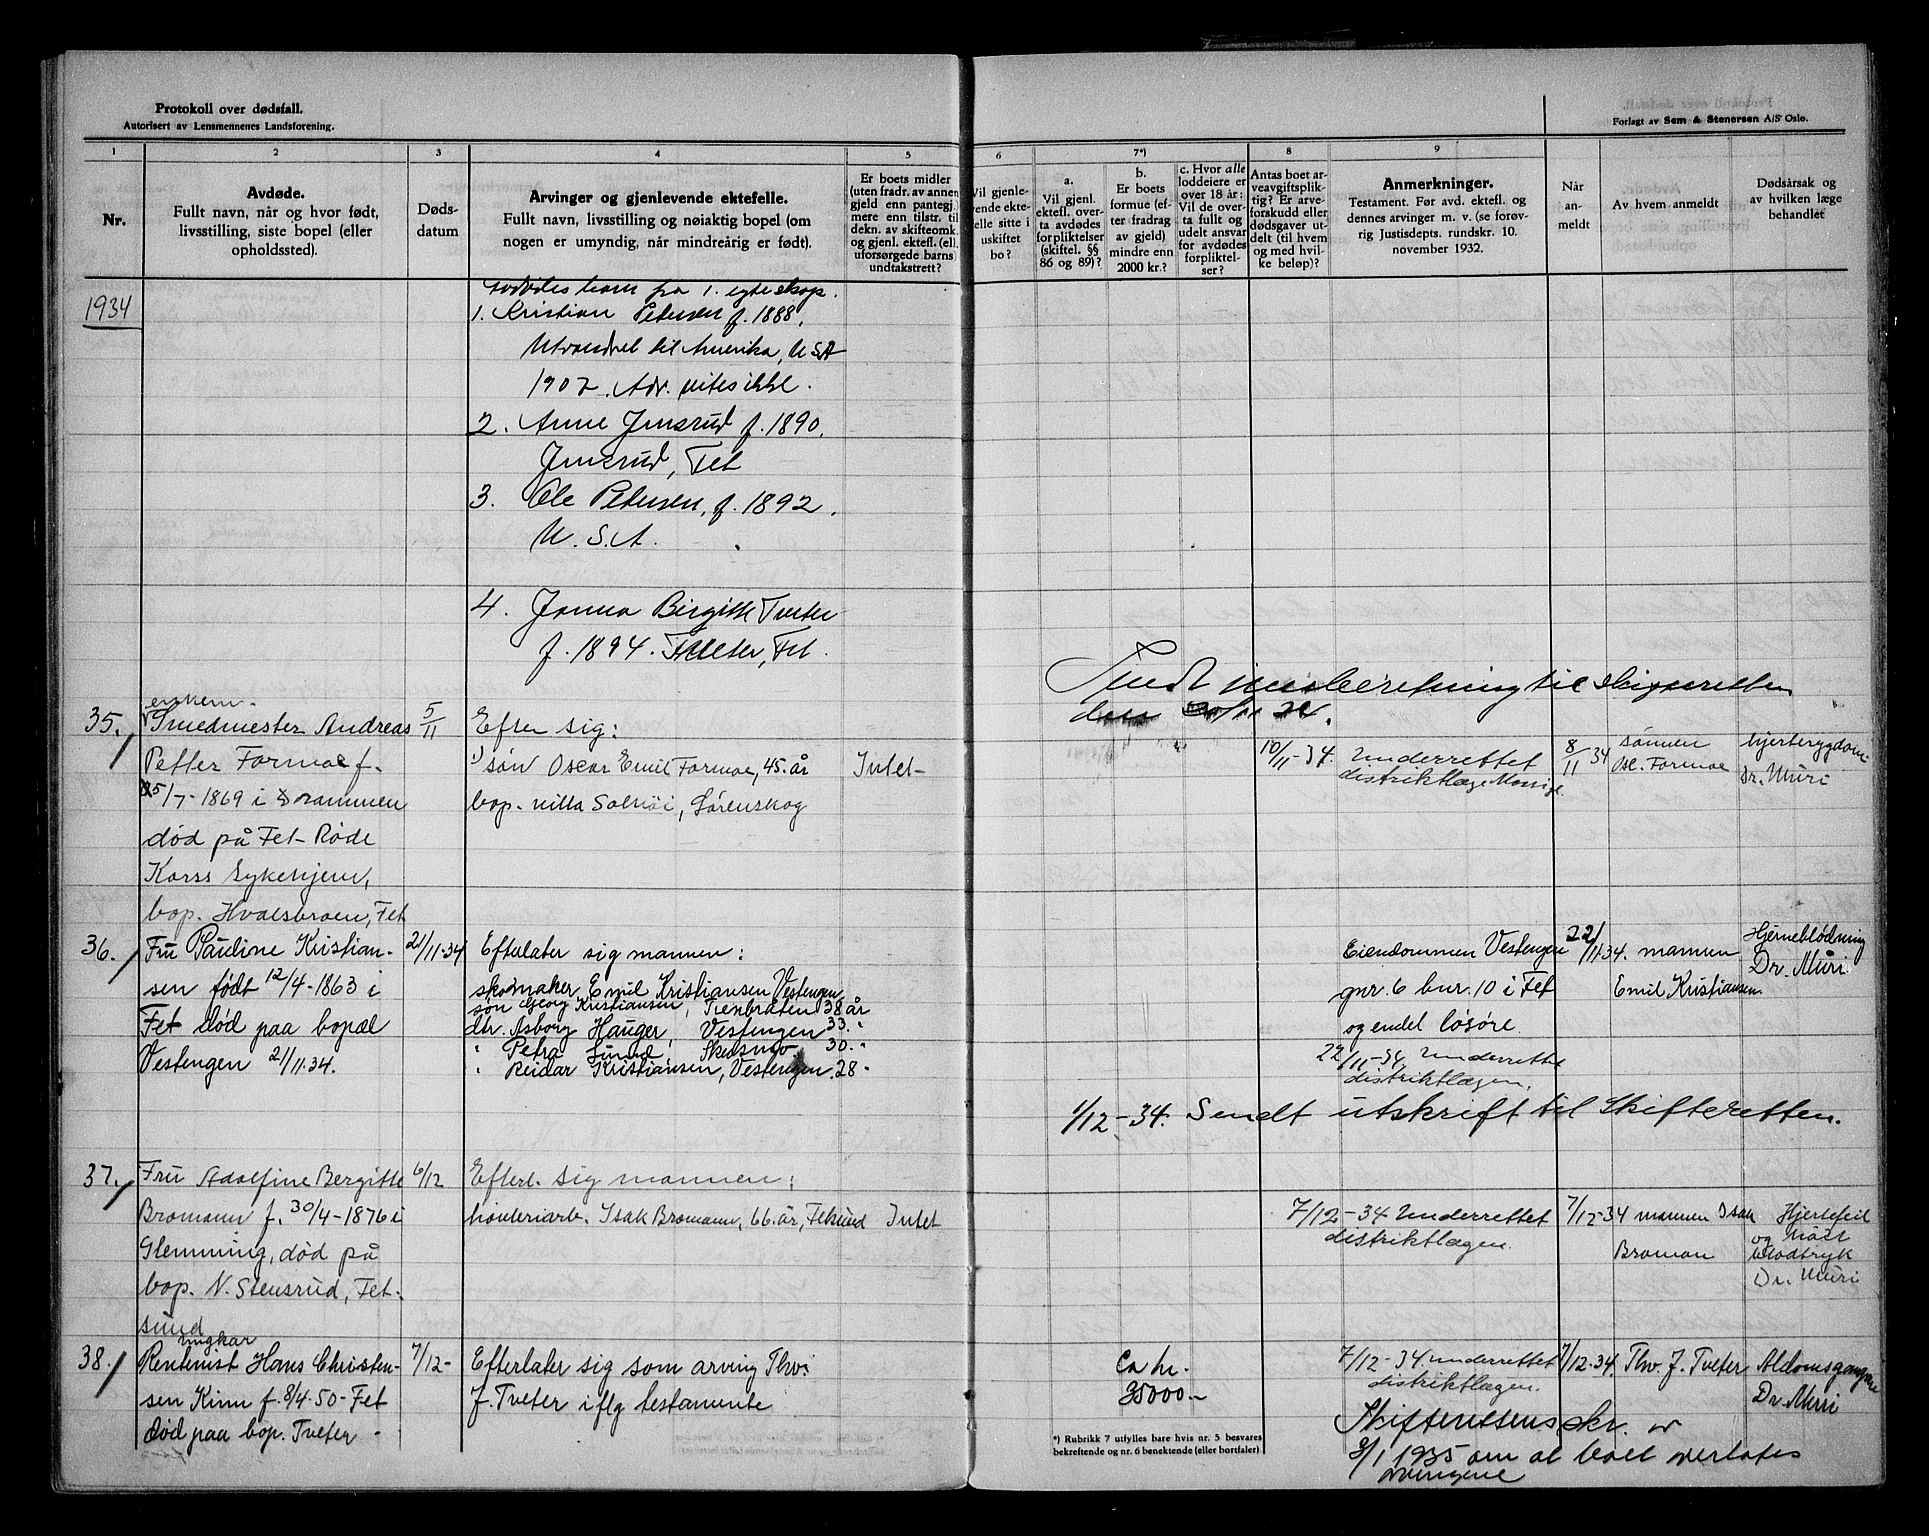 Protokoll over dødsfall.
Autorisert av Lensmennenes Landsforening.
Forlagt av Sem & Stenersen A/S Oslo.
1 2 3 4 5 6 7*) 8 9
Nr.
Avdøde.
Fullt navn, når og hvor født,
livsstilling, siste bopel (eller
opholdssted).
Døds-
datum
Arvinger og gjenlevende ektefelle.
Fullt navn, livsstilling og nøiaktig bopel (om
nogen er umyndig, når mindreårig er født).
Er boets midler
(uten fradr. av annen
gjeld enn pantegj.)
mere enn tilstr. til
dekn. av skifteomk.
og gjenl. ektefl. (ell.
uforsørgede barns)
undtakstrett?
Vil gjenle-
vende ekte-
elle sitte i
uskiftet
bo?
a.
Vil gjenl.
ektefl. over-
ta avdødes
forpliktelser
(skiftel. §§
86 og 89)?
b.
Er boets
formue (ef-
ter fradrag
av gjeld)
mindre enn
2000 kr.?
c. Hvor alle
loddeiere er
over 18 år:
Vil de over-
ta fullt og
udelt ansvar
for avdødes
forpliktel-
ser?
Antas boet ar-
veavgiftsplik-
tig? Er arve-
forskudd eller
dødsgaver ut-
delt (til hvem
og med hvil-
ke beløp)?
Anmerkninger.
Testament. Før avd. ektefl. og
dennes arvinger m. v. (se forøv-
rig Justisdepts. rundskr. 10.
november 1932.
Når
an-
meldt
Av hvem anmeldt
Dødsårsak og
av hvilken læge
behandlet
1934
Avdødes barn fra 1. egteskap.
1. Kristian Petersen f. 1888,
Utvandret til Amerika, USA
1907. Adr. vites ikke.
2. Anne Jmsrud f. 1890.
Jmsrud, Fet
3. Ole Petersen, f. 1892.
U. S. A.
4. Janna Birgitte Tveter
f. 1894. Tveter, Fet.
Sendt innberetning til skifteretten
den
35. enkem.
Smedmester Andreas
Petter Formoe f.
25/7-1869 i Drammen
død på Fet Røde
Korss Sykehjem,
bop. Hvalsbraen, Fet
5/11
Efter sig:
1) søn Oscar Emil Formoe, 45 år
bop. villa Solhøi, Lørenskog
Intet
10/11-34. Underrettet
distriktlæge
8/11 34
sønnen
Osc. Formoe
hjertesygdom
Dr. Muri
36. Fru Pauline Kristian-
sen født 12/4-1863 i
Fet død paa bopæl
Vestengen 21/11.34.
21/11-34
Efterlater sig mannen:
skomaker Emil Kristiansen Vestengen
søn Georg Kristiansen, Tienbråten 38 år
dtr. Asborg Hauger, Vestengen 33 "
" Petra Sunnd, Skedsmo 30 "
" Reidar Kristiansen, Vestengen 28 "
Eiendommen Vestengen
gnr. 6 bnr. 10 i Fet
og endel løsøre.
22/11-34 Underrettet
distriktlægen.
22/11.34. mannen
Emil Kristiansen
Hjerneblødning
Dr. Muri
1/12-34. Sendt utskrift til Skifteretten.
37. Fru Adolfine Bergitte
Bromann f. 30/4-1876 i
Glemming, død på
bop. N. Stensrud, Fet-
sund
6/12
Efterl. sig mannen:
Isak Bromann, 66 år, Fetsund
Intet
7/12-34 Underrettet
distriktlægen.
7/12-34 mannen Isak
Broman
Hjertefeil
og høit
blodtryk
Dr. Muri
38. ungkar
Rentenist Hans Christen-
sen Kinn f. 8/4-50-Fet
død paa bop. Tveter-
7/12-
Efterlater sig som arving Thv.
J. Tveter iflg testamente
Ca kr.
35000.-
7/12-34 underrettet
distriktlægen.
7/12.34. Thv J. Tveter
Aldomsgangen
Dr. Muri
Skifterettens skr. av
3/1 1935 om at boet overlates
arvingene
*) Rubrikk 7 utfylles bare hvis nr. 5 besvares
bekreftende og nr. 6 benektende (eller bortfaler)